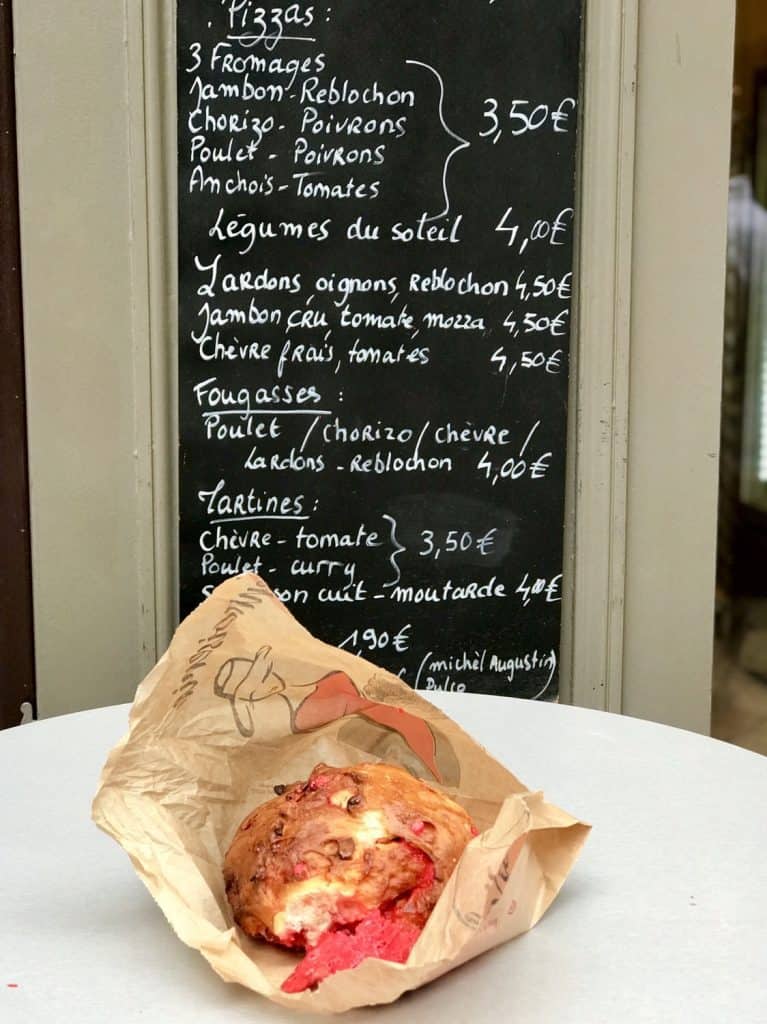 . Pizzas :
3 Fromages
Jambon - Reblochon
Chorizo - Poivrons 3,50€
Poulet - Poivrons
Anchois - Tomates
Légumes du soleil 4,00€
Lardons, oignons, Reblochon 4,50€
Jambon cru, tomate, mozza 4,50€
Chèvre frais, tomates 4,50€
Fougasses :
Poulet / Chorizo / chèvre /
Lardons - Reblochon 4,00€
Tartines :
Chèvre - tomate 3,50€
Poulet - curry
cuit - moutarde 4,00€
1,90€
(michèl Augustin)
Dulce